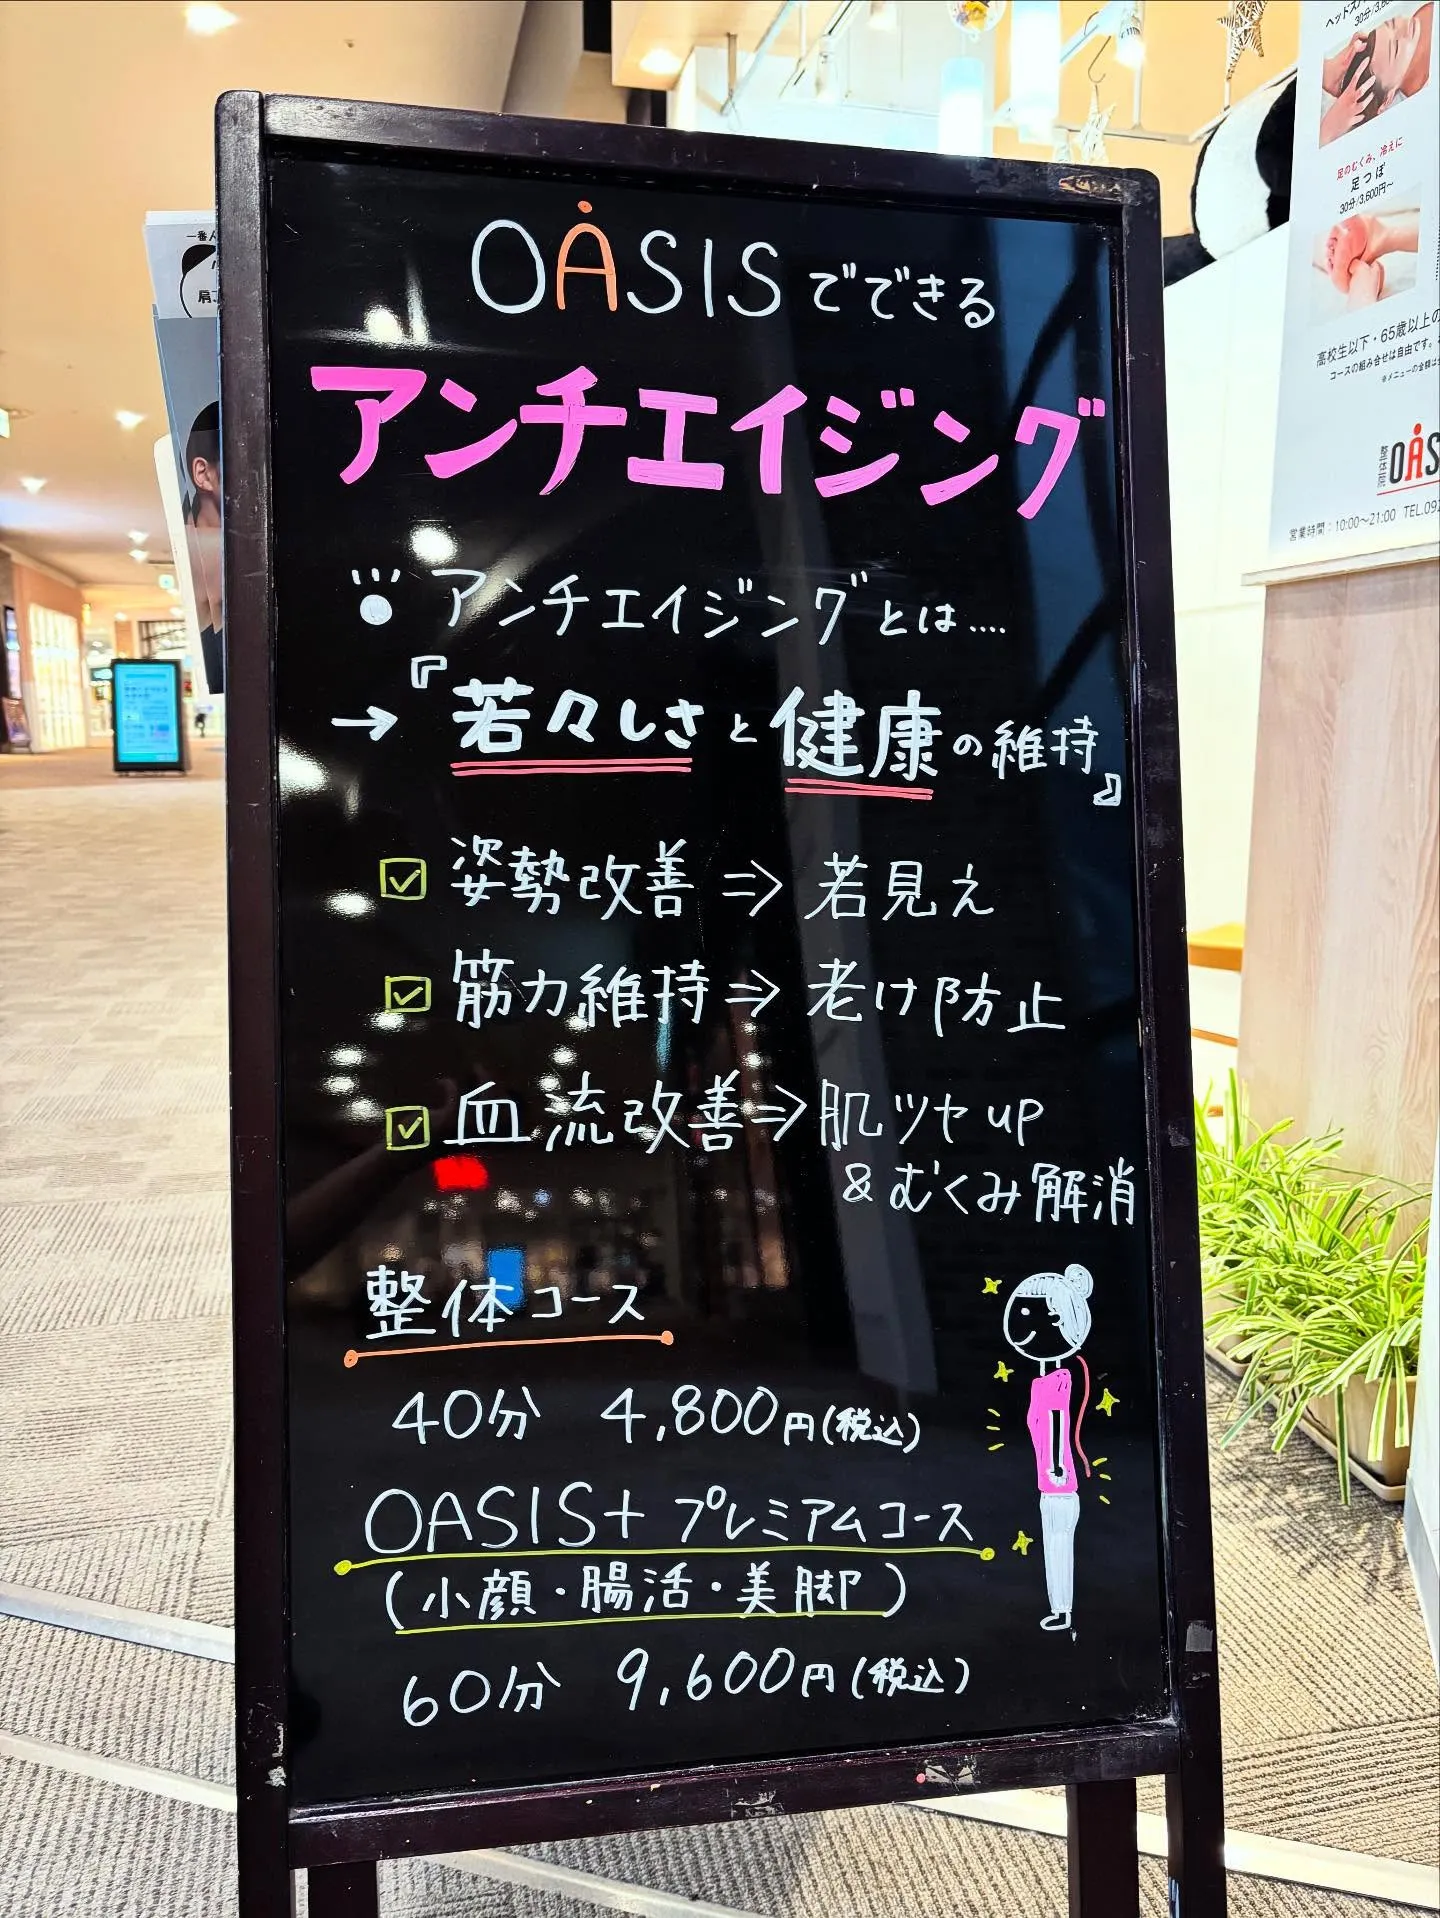 OASISでできる
アンチエイジング
アンチエイジングとは....
→『若々しさと健康の維持』
姿勢改善⇒若見え
筋力維持⇒老け防止
血流改善⇒肌ツヤup
&むくみ解消
整体コース
40分 4,800円(税込)
OASIS+プレミアムコース
(小顔・腸活・美脚)
60分 9,600円(税込)
足のむくみ、冷えに
足つぼ
30分/3,600円~
高校生以下・65歳以上の
コースの組み合せは自由です。
整体院 OAS
営業時間:10:00~21:00 TEL.092
一番人
肩